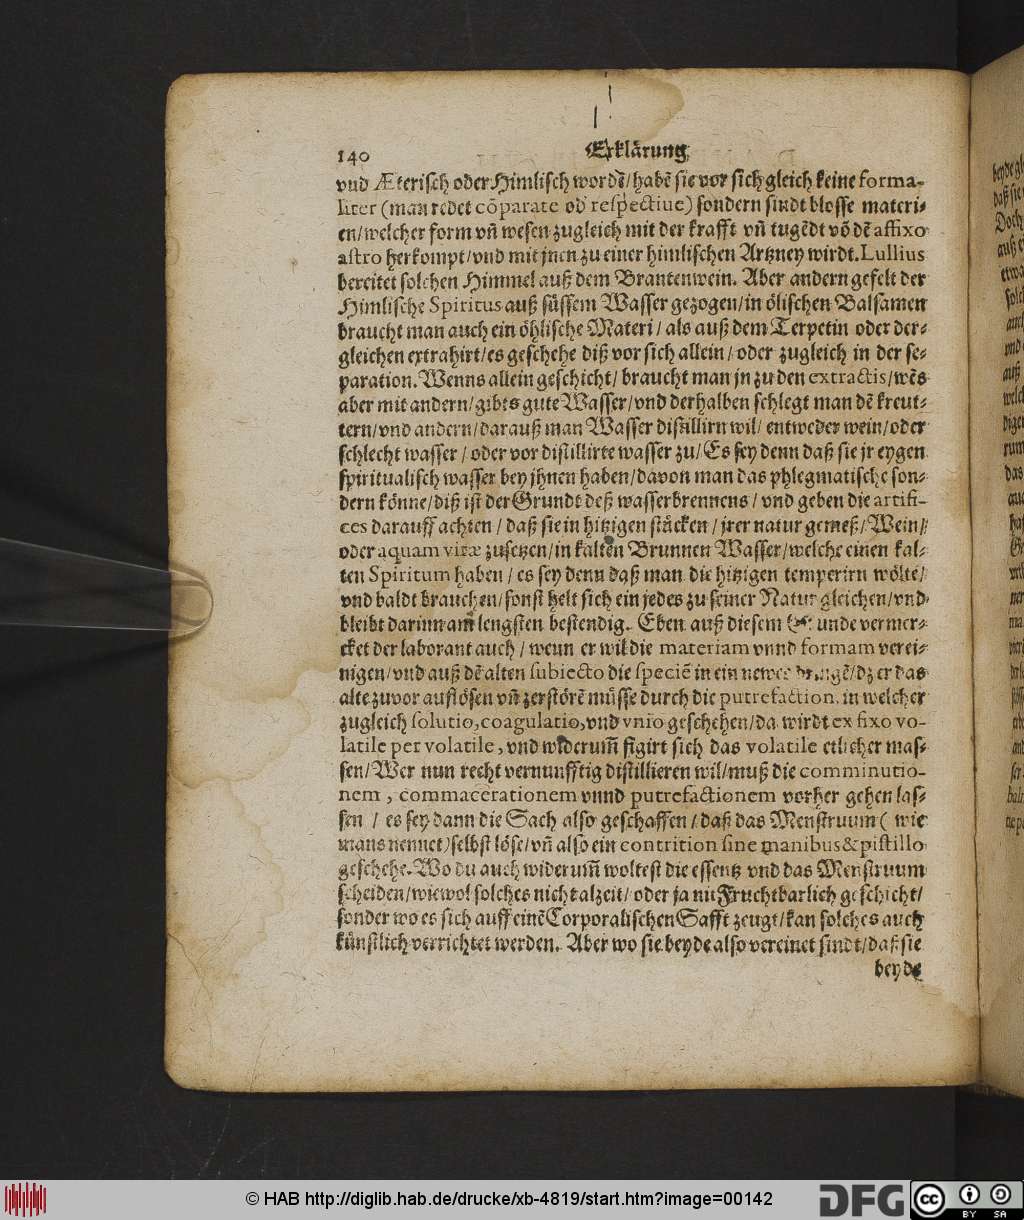 140 Erklärung
vnd Æterisch oder Himlisch wordē/habē sie vor sich gleich keine forma-
liter (man redet cōparate oď respectiue) sondern sindt blosse materi-
en/welcher form vñ wesen zugleich mit der krafft vñ tugēdt vō dē affixo
astro herkompt/vnd mit jnen zu einer himlischen Artzney wirdt. Lullius
bereitet solchen Himmel auß dem Brantenwein. Aber andern gefelt der
Himlische Spiritus auß süssem Wasser gezogen/in ölischen Balsamen
braucht man auch ein öhlische Materi / als auß dem Terpetin oder der-
gleichen extrahirt/es geschehe diß vor sich allein / oder zugleich in der se-
paration. Wenns allein geschicht/ braucht man jn zu den extractis/wēs
aber mit andern/gibts gute Wasser/vnd derhalben schlegt man dē kreut-
tern/vnd andern/darauß man Wasser distillirn wil/ entweder wein/oder
schlecht wasser / oder vor distillirte wasser zu/Es sey denn daß sie jr eygen
spiritualisch wasser bey jhnen haben/davon man das phlegmatische son-
dern könne/diß ist der Grundt deß wasserbrennens / vnd geben die artifi-
ces darauff achten / daß sie in hitzigen stücken / jrer natur gemeß/Wein/
oder aquam vitæ zusetzen/in kalten Brunnen Wasser/welche einen kal-
ten Spiritum haben / es sey denn daß man die hitzigen temperirn wölte/
vnd baldt brauchen/sonst helt sich ein jedes zu seiner Natur gleichen/vnd
bleibt darinn am lengsten bestendig. Eben auß diesem vermer-
cket der laborant auch / wenn er wil die materiam vnnd formam verei-
nigen/vnd auß dē alten subiecto die speciē in ein newes bringē/dz er das
alte zuvor auflösen vñ zerstörē müsse durch die putrefaction, in welcher
zugleich solutio, coagulatio, vnd vnio geschehen/da wirdt ex fixo vo-
latile per volatile, vnd widerum̃ figirt sich das volatile etlicher mas-
sen/Wer nun recht vernunfftig distillieren wil/muß die comminutio-
nem, commacerationem vnnd putrefactionem vorher gehen las-
sen / es sey dann die Sach also geschaffen / daß das Menstruum ( wie
mans nennet) selbst löse/vñ also ein contrition sine manibus & pistillo
geschehe. Wo du auch widerum̃ woltest die essentz vnd das Menstruum
scheiden/wiewol solches nicht alzeit/ oder ja nit Fruchtbarlich geschicht/
sonder wo es sich auff einē Corporalischen Safft zeugt/kan solches auch
künstlich verrichtet werden. Aber wo sie beyde also vereinet sindt/daß sie
beyde
© HAB http://diglib.hab.de/drucke/xb-4819/start.htm?image=00142
DFG
cc BY SA